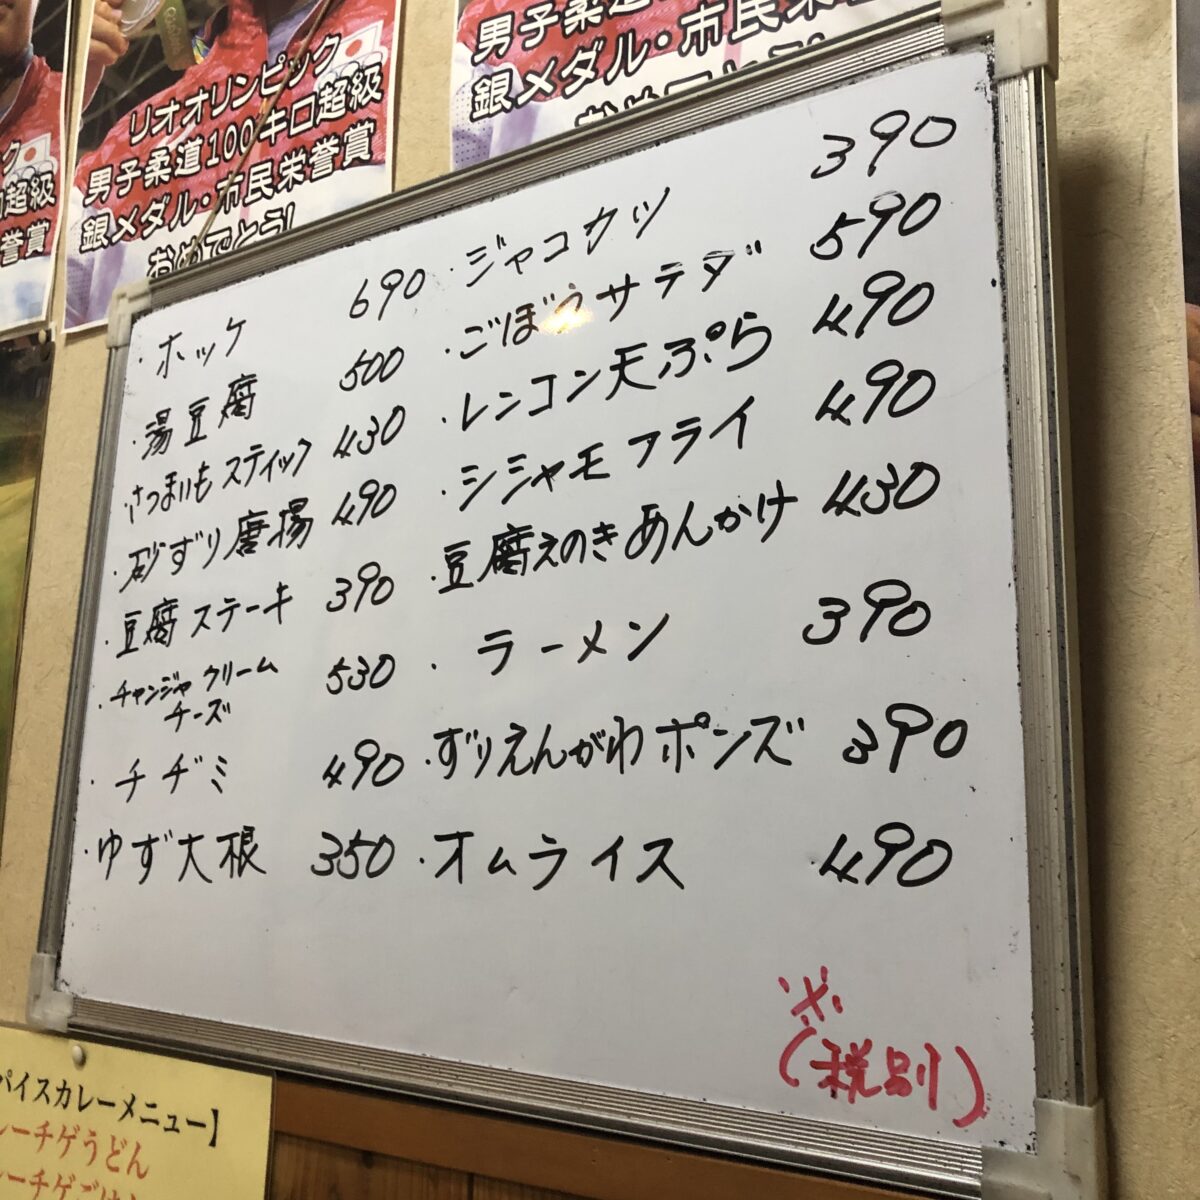 リオオリンピック
男子柔道100キロ超級
銀メダル・市民栄誉賞
おめでとう!
男子柔道
銀メダル・市民栄
ク
超級
誉賞
・ホッケ 690
・湯豆腐 500
・さつまいもスティック 430
・砂ずり唐揚 490
・豆腐ステーキ 390
・チャンジャクリーム
チーズ 530
・チヂミ 490
・ゆず大根 350
・ジャコカツ 390
・ごぼうサラダ 590
・レンコン天ぷら 490
・シシャモフライ 490
・豆腐えのきあんかけ 430
・ラーメン 390
・ずりえんがわポンズ 390
・オムライス 490
※
(税別)
パイスカレーメニュー】
レーチゲうどん